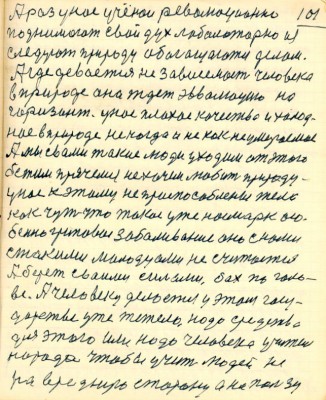 А разумное учёной революционно 101
поднимают свой дух лаболаторно и
следуют природу облагащают делом.
А где девается не зависемость человека
в природе она ждет эвволюцию но
гаризонт. умное плахое качество и холод-
ное в природе не когда и не как не умераемое
А мы с вами такие люди уходим от этого
бежим прячемся не хочем любит природу-
у нас к этому не приспособлены тело
как чут-что такое уже насмарк осо-
бенно гриповые забаливание оно с нами
с такими молодцами не считается
А берет сваими силами, бах по голо-
ве. А человеку делается у этом госу-
дарстве уже тежело, надо средства
для этого или надо человека учителя
народа чтобы учит людей не
на вредную сторону а на пользу